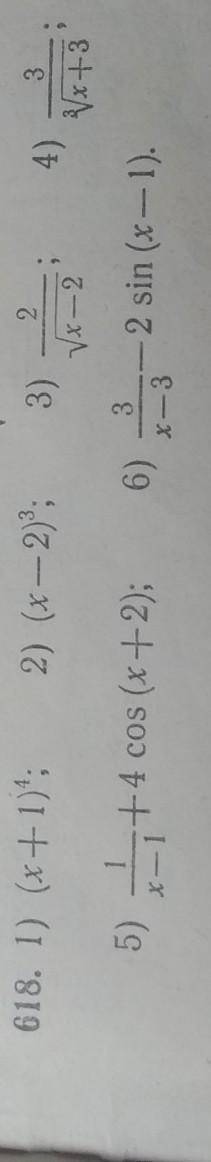 618. 1) (x+1)⁴; 2) (x−2)³; 3) 2/√(x−2); 4) 3/∛(x+3);
5) 1/(x−1)+4 cos (x+2); 6) 3/(x−3)−2 sin (x−1).